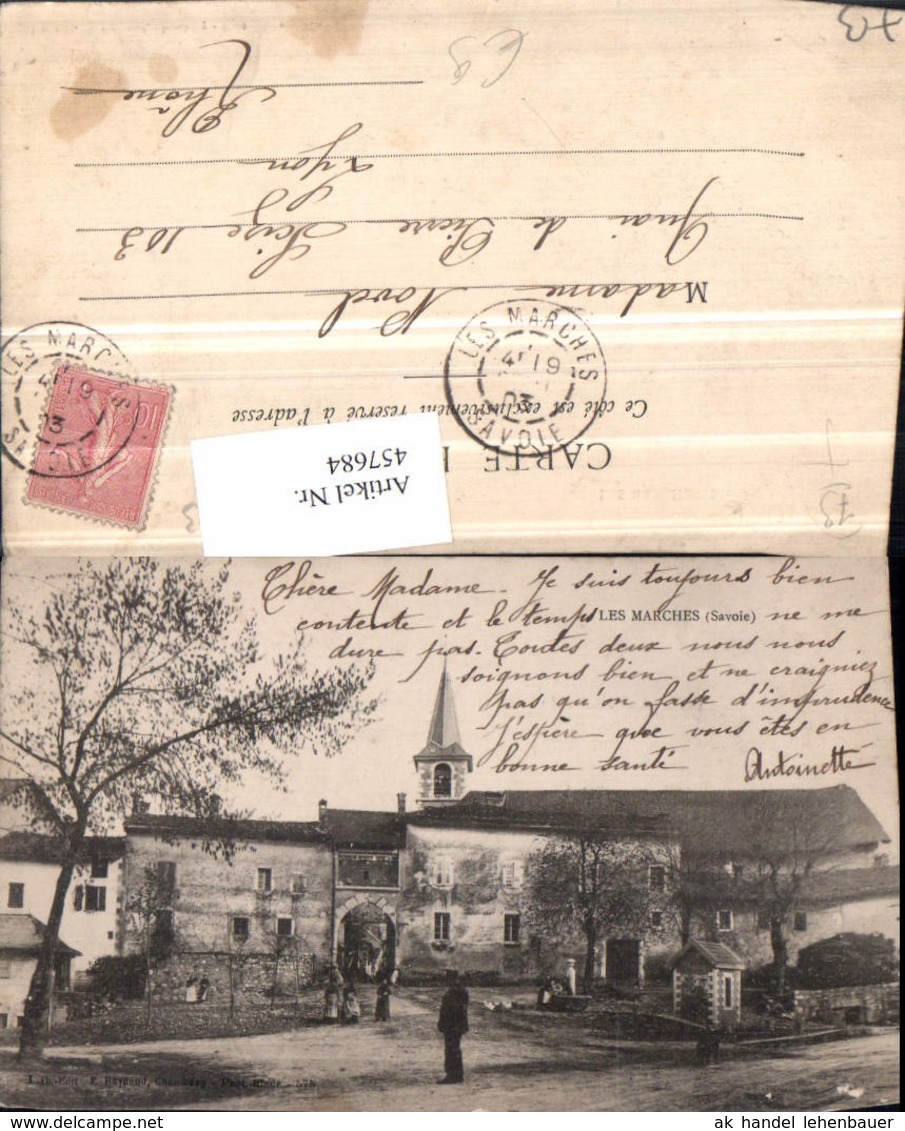 CARTE
Ce côté est exclusivement réservé à l'adresse
LES MARCHES
4E 19
03
SAVOIE
LES MARCHES
19
03
SAVOIE
10
Madame Novel
Quai de Pierre Scize 103
Lyon
Rhône
Artikel Nr.
457684
73
LES MARCHES (Savoie)
Chère Madame. Je suis toujours bien
contente et le temps ne me
dure pas. Toutes deux nous nous
soignons bien et ne craigniez
pas qu'on fasse d'imprudence
J'espère que vous êtes en
bonne santé Antoinette
Lib.-Edit., E. Reynaud, Chambéry - Phot.
ak handel lehenbauer